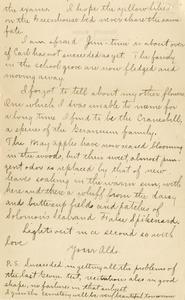 the examr. I hope the yellow lilies
in the Greenhouse bed never share the same
fate.
I am afraid Jim-time is about over
if Carl has not succeeded as yet. The family
in the school grove are now fledged and
moving away.
I forgot to tell about my other flower
One which I was unable to name for
a long time I find to be the Cranesbill,
a species of the Geranium family.
The May apples have now ceased blooming
in the woods, but this sweet almost pun-
gent odor is replaced by that of new
leaves soaking in the warm sun, with
here and there a whiff from the daisy
and buttercup fields and patches of
Solomon's Seal and False Spikenard.
Lights out in a second so with
love
Your Aldo.
P.S. Succeeded in getting all the problems of
the last term test, recitations also in good
shape, no failures in that subject.
I given the cemetery will be very beautiful tomorrow